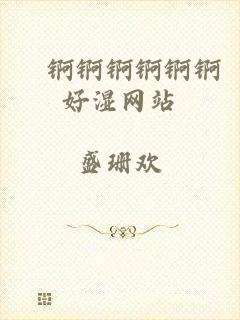 锕锕锕锕锕锕
好湿网站
盛珊欢